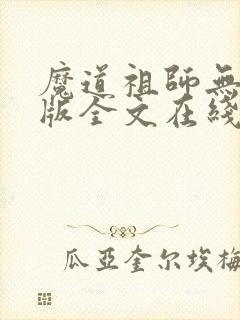 魔道祖师無
版全文在綫
瓜亞奎尔埃梅